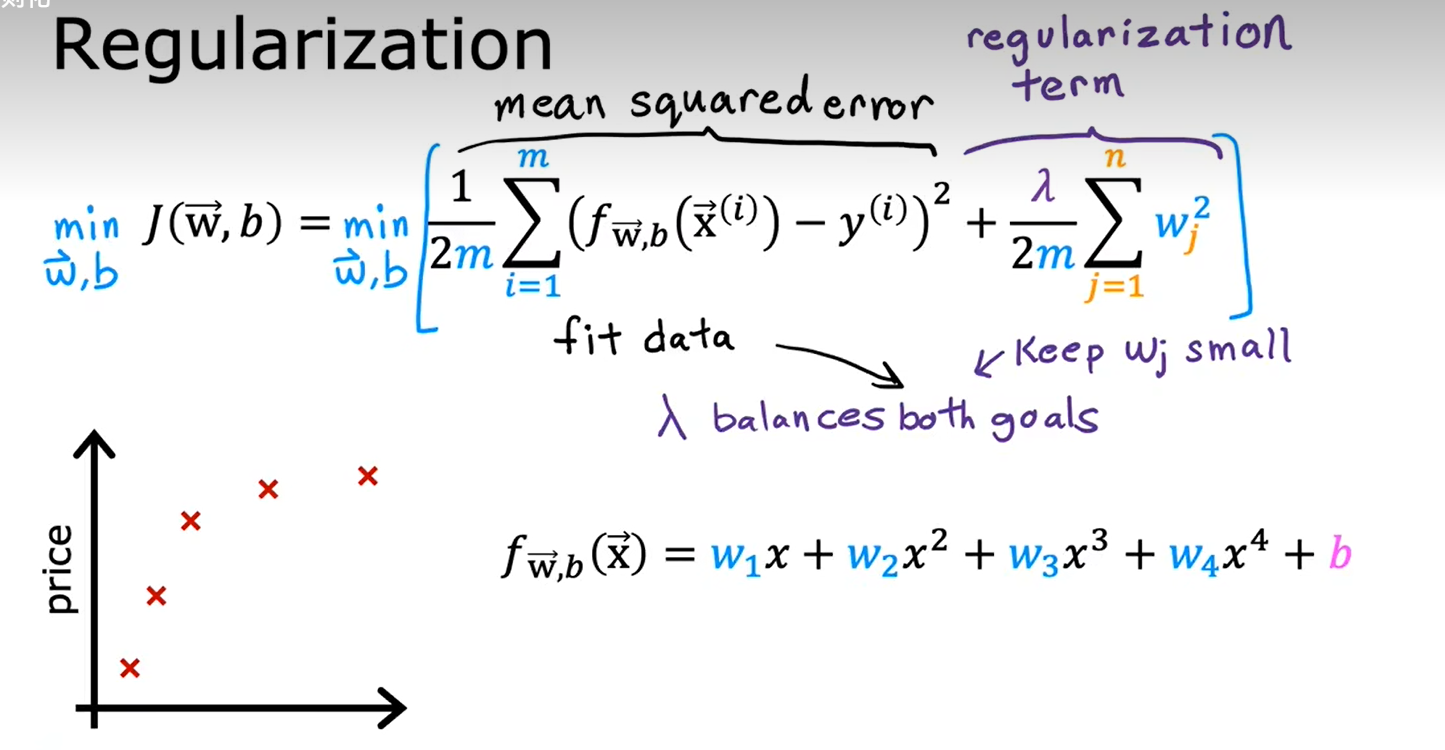 Regularization
regularization
term
mean squared error
min J(w⃗,b) = min [ 1/2m ∑ᵢ₌₁ᵐ (f_w⃗,b(x⃗⁽ⁱ⁾) − y⁽ⁱ⁾)² + λ/2m ∑ⱼ₌₁ⁿ wⱼ² ]
w⃗,b w⃗,b
fit data
Keep wⱼ small
λ balances both goals
price
f_w⃗,b(x⃗) = w₁x + w₂x² + w₃x³ + w₄x⁴ + b